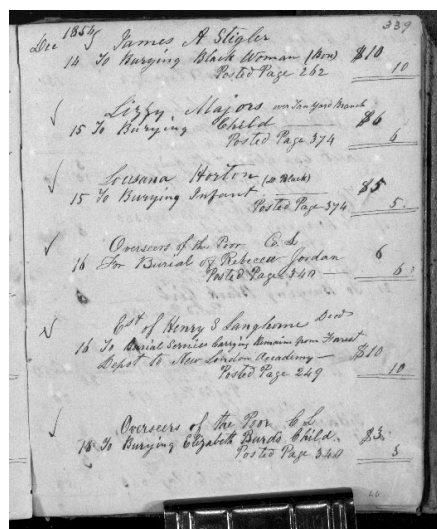 339
Dec 1854
James A Stigler
14 To Burying Black Woman (Bon) $10
Posted Page 262 10
Lizzy Majors over Tan Yard Branch
15 To Burying Child $6
Posted Page 374 6
Lousana Horton (a Black)
15 To Burying Infant $5
Posted Page 374 5
Overseers of the Poor C. L
16 For Burial of Rebecca Jordan 6
Posted Page 340 6
Est of Henry S Langhorne Decd
16 To Burial Services Carrying Remains from Forest
Depot to New London Accademy — $10
Posted Page 249 10
Overseers of the Poor C L
18 To Burying Elizabeth Burds Child. $3
Posted Page 340 3